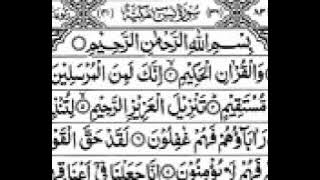 سُوْرَةُ يٰسٓ مَكِّيَّةٌ
بِسْمِ اللهِ الرَّحْمٰنِ الرَّحِيْمِ
وَالْقُرْاٰنِ الْحَكِيْمِ اِنَّكَ لَمِنَ الْمُرْسَلِيْنَ
مُّسْتَقِيْمٍ تَنْزِيْلَ الْعَزِيْزِ الرَّحِيْمِ
اٰبَآؤُهُمْ فَهُمْ غٰفِلُوْنَ لَقَدْ حَقَّ الْقَوْ
فَهُمْ لَا يُؤْمِنُوْنَ اِنَّا جَعَلْنَا فِيْ اَعْنَاقِ